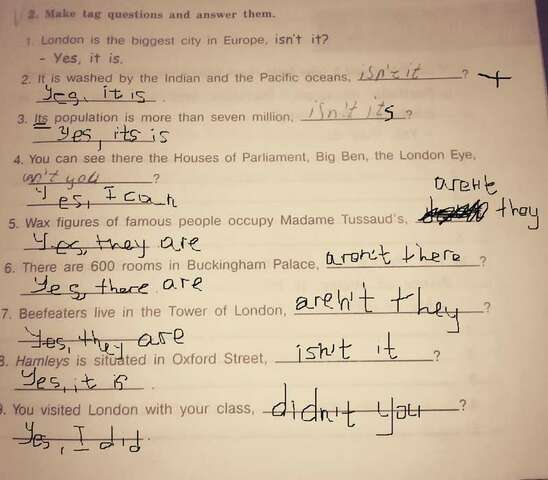 2. Make tag questions and answer them.
1. London is the biggest city in Europe, isn't it?
- Yes, it is.
2. It is washed by the Indian and the Pacific oceans, isn't it ? +
Yes, it is
3. Its population is more than seven million, isn't its ?
Yes, its is
4. You can see there the Houses of Parliament, Big Ben, the London Eye,
can't you ?
Yes, I can
arent
5. Wax figures of famous people occupy Madame Tussaud's, they
Yes, they are
6. There are 600 rooms in Buckingham Palace, aren't there ?
Yes, there are
7. Beefeaters live in the Tower of London, aren't they ?
Yes, they are
8. Hamleys is situated in Oxford Street, isn't it ?
Yes, it is
9. You visited London with your class, didn't you ?
Yes, I did.